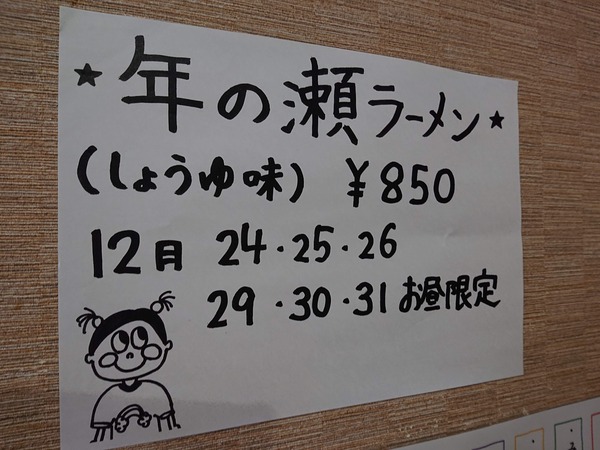 ★年の瀬ラーメン★
(しょうゆ味) ¥850
12月 24・25・26
29・30・31 お昼限定